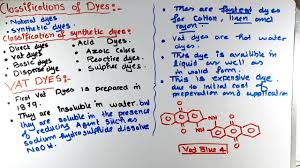 Classifications of Dyes:-
• Natural dyes
• Synthetic dyes.
Classification of synthetic dyes:-
• Direct dyes
• Acid Dyes
• Vat dyes
• Azoic Colors
• Basic dyes
Reactive dyes.
• Disperse dyes
Sulpher dyes.
VAT DYES:-
• First Vat Dyes is prepared in
1879.
• They are insoluble in water. but
• They are soluble in the presence
of reducing Agent such as
sodium hydrosulphide dissolve
NaOH.
• They are fastest dyes
for cotton, linen and
rayon.
• Vat dyes are Hot water
dyes.
• This dye is available in
liquid as well as in
solid form.
• This is expensive dye
due to initial cost of
preperation and application
Vat Blue 4